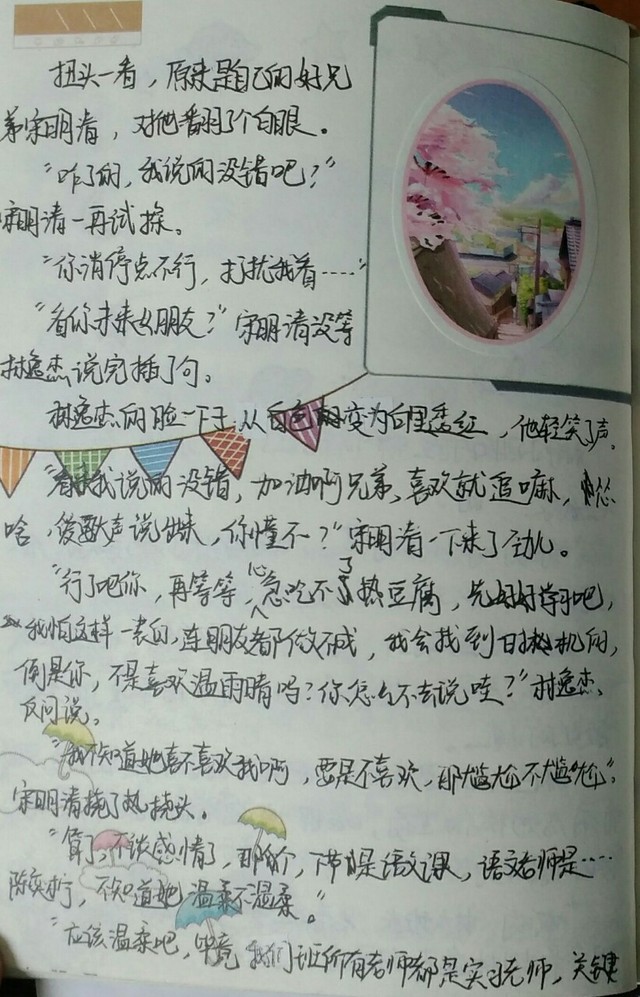 扭头一看，原来是自己的好兄
弟宋明清，对他翻了个白眼。
“咋了的，我说的没错吧？”
宋明清一再试探。
“你消停点不行，打扰我看……”
“看你未来女朋友？”宋明清没等
林逸杰说完插了句。
林逸杰的脸一下子从白色变为白里透红，他轻笑了声。
“看来我说的没错，加油啊兄弟，喜欢就追嘛，怂
啥，爱要大声说出来，你懂不？”宋明清一下来了劲儿。
“行了吧你，再等等，心急吃不了热豆腐，先好好学习吧，
我怕这样一表白，连朋友都做不成，我会找到时机的，
倒是你，不是喜欢温雨晴吗？你怎么不去说哇？”林逸杰
反问说。
“我不知道她喜不喜欢我啊，要是不喜欢，那尴尬不尴尬”。
宋明清挠了挠头。
“算了，不谈感情了，那个，下节是语文课，语文老师是……
陈奕柠，不知道她温柔不温柔。”
“应该温柔吧，毕竟我们班所有老师都是实习老师，关键